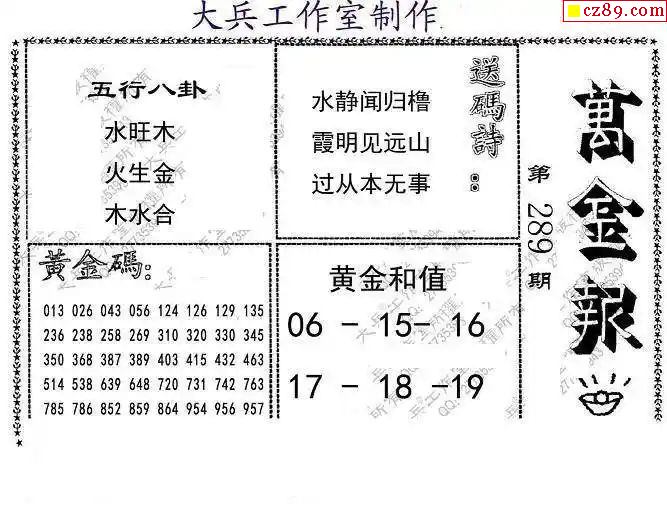 大兵工作室制作
cz89.com
五行八卦
水旺木
火生金
木水合
送碼詩:
水静闻归橹
霞明见远山
过从本无事
萬金报
第 289 期
黃金碼:
013 026 043 056 124 126 129 135
236 238 258 269 310 320 330 345
350 368 387 389 403 415 432 463
514 538 639 648 720 731 742 763
785 786 852 859 864 954 956 957
黄金和值
06 - 15- 16
17 - 18 -19